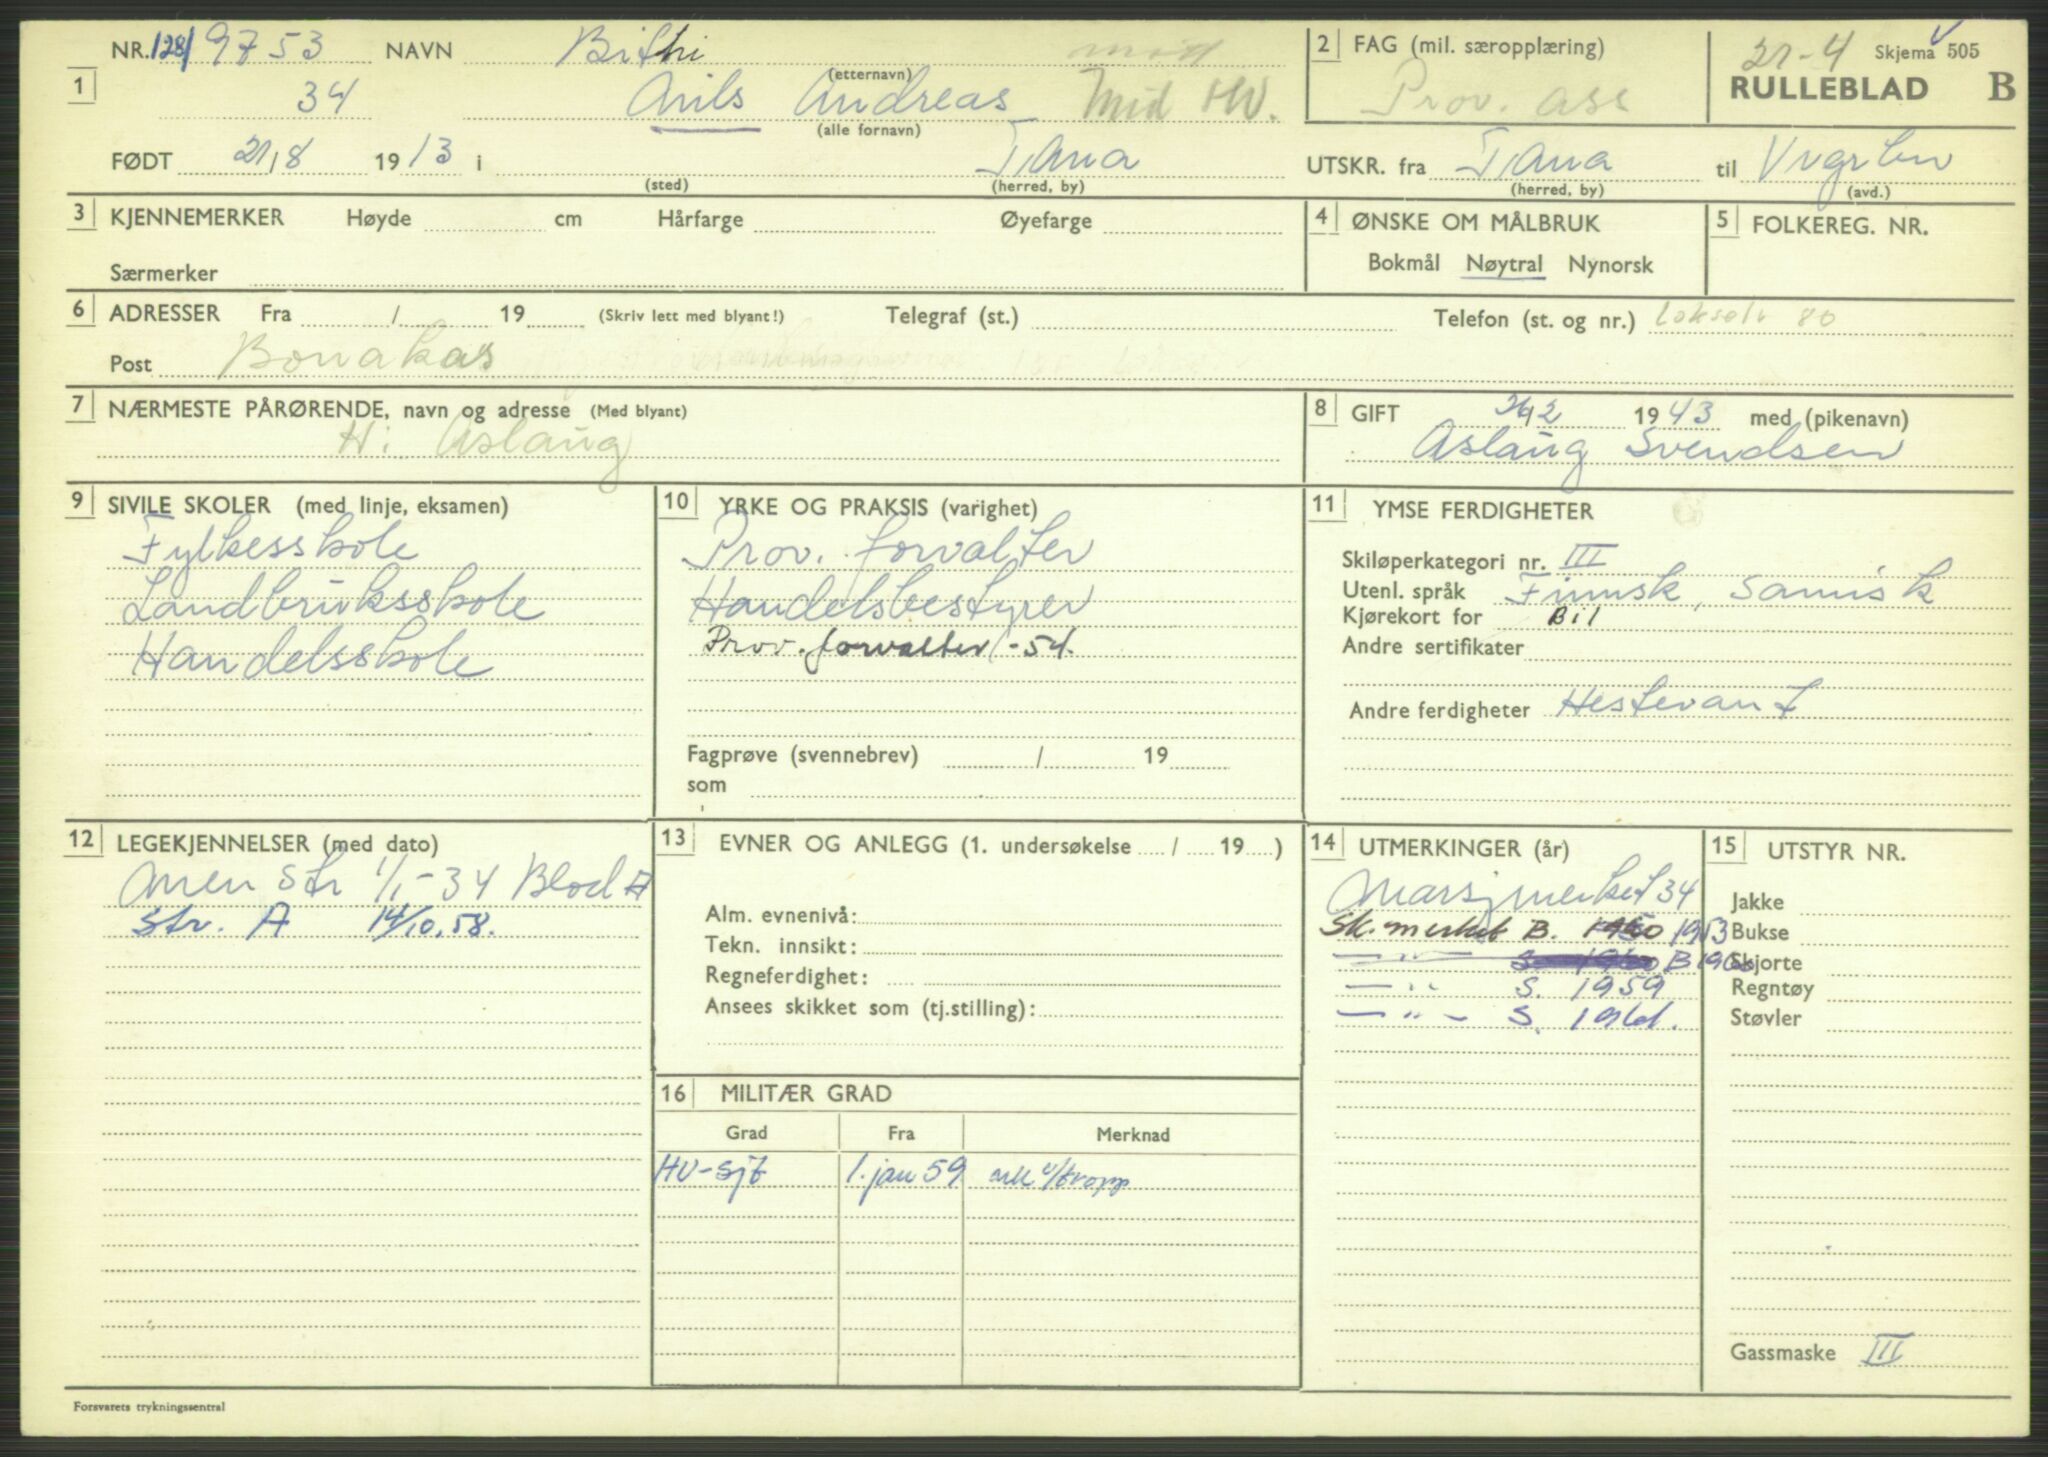 NR. 128/9753 NAVN Bithi 2 FAG (mil. særopplæring) 21-4 Skjema 505
(etternavn)
1 34 Nils Andreas Mid HV. Prov. ass RULLEBLAD B
(alle fornavn)
FØDT 21/8 1913 i Tana UTSKR. fra Tana til
(sted) (herred, by) (herred, by) (avd.)
3 KJENNEMERKER Høyde cm Hårfarge Øyefarge 4 ØNSKE OM MÅLBRUK 5 FOLKEREG. NR.
Særmerker Bokmål Nøytral Nynorsk
6 ADRESSER Fra / 19 (Skriv lett med blyant!) Telegraf (st.) Telefon (st. og nr.) Lakselv 80
Post Bonakas
7 NÆRMESTE PÅRØRENDE, navn og adresse (Med blyant) 8 GIFT 26/2 1943 med (pikenavn)
H: Aslaug Aslaug Svendsen
9 SIVILE SKOLER (med linje, eksamen)
Fylkesskole
Landbruksskole
Handelsskole
10 YRKE OG PRAKSIS (varighet)
Prov. forvalter
Handelsbestyrer
Prov. forvalter -54.
Fagprøve (svennebrev) / 19
som
11 YMSE FERDIGHETER
Skiløperkategori nr. III
Utenl. språk Finnsk, Samisk
Kjørekort for Bil
Andre sertifikater
Andre ferdigheter Hestevant
12 LEGEKJENNELSER (med dato)
str 1/1-34 Blod A
Str. A 14/10.58.
13 EVNER OG ANLEGG (1. undersøkelse / 19 )
Alm. evnenivå:
Tekn. innsikt:
Regneferdighet:
Ansees skikket som (tj.stilling):
14 UTMERKINGER (år)
Marsjmerket 34
Sk. merket B. 1953
—"— S. 1960 B 1960
—"— S. 1959
—"— S. 1961.
15 UTSTYR NR.
Jakke
Bukse
Skjorte
Regntøy
Støvler
Gassmaske III
16 MILITÆR GRAD
Grad Fra Merknad
HV-sjt 1. jan 59 v/tropp
Forsvarets trykningssentral